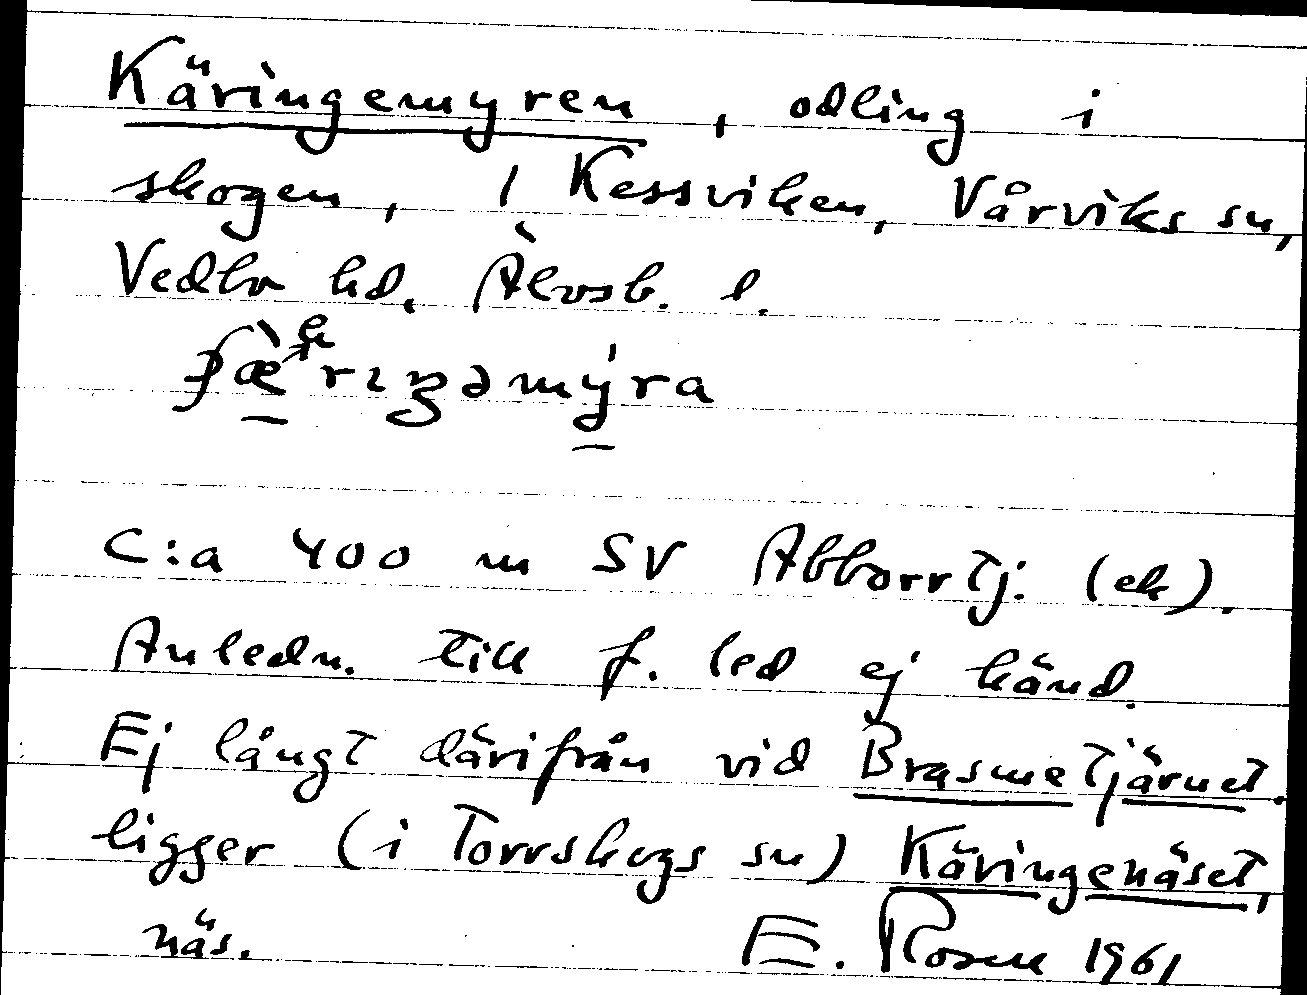 Käringemyren, odling i
skogen, 1 Kessviken, Vårviks sn,
Vedbo hd, Älvsb. l.
C:a 400 m SV Abborrtj. (ek).
Anledn. till f. led ej känd.
Ej långt därifrån vid Brasmetjärnet.
ligger (i Torrskogs sn) Käringenäset,
näs. E. Rosen 1961